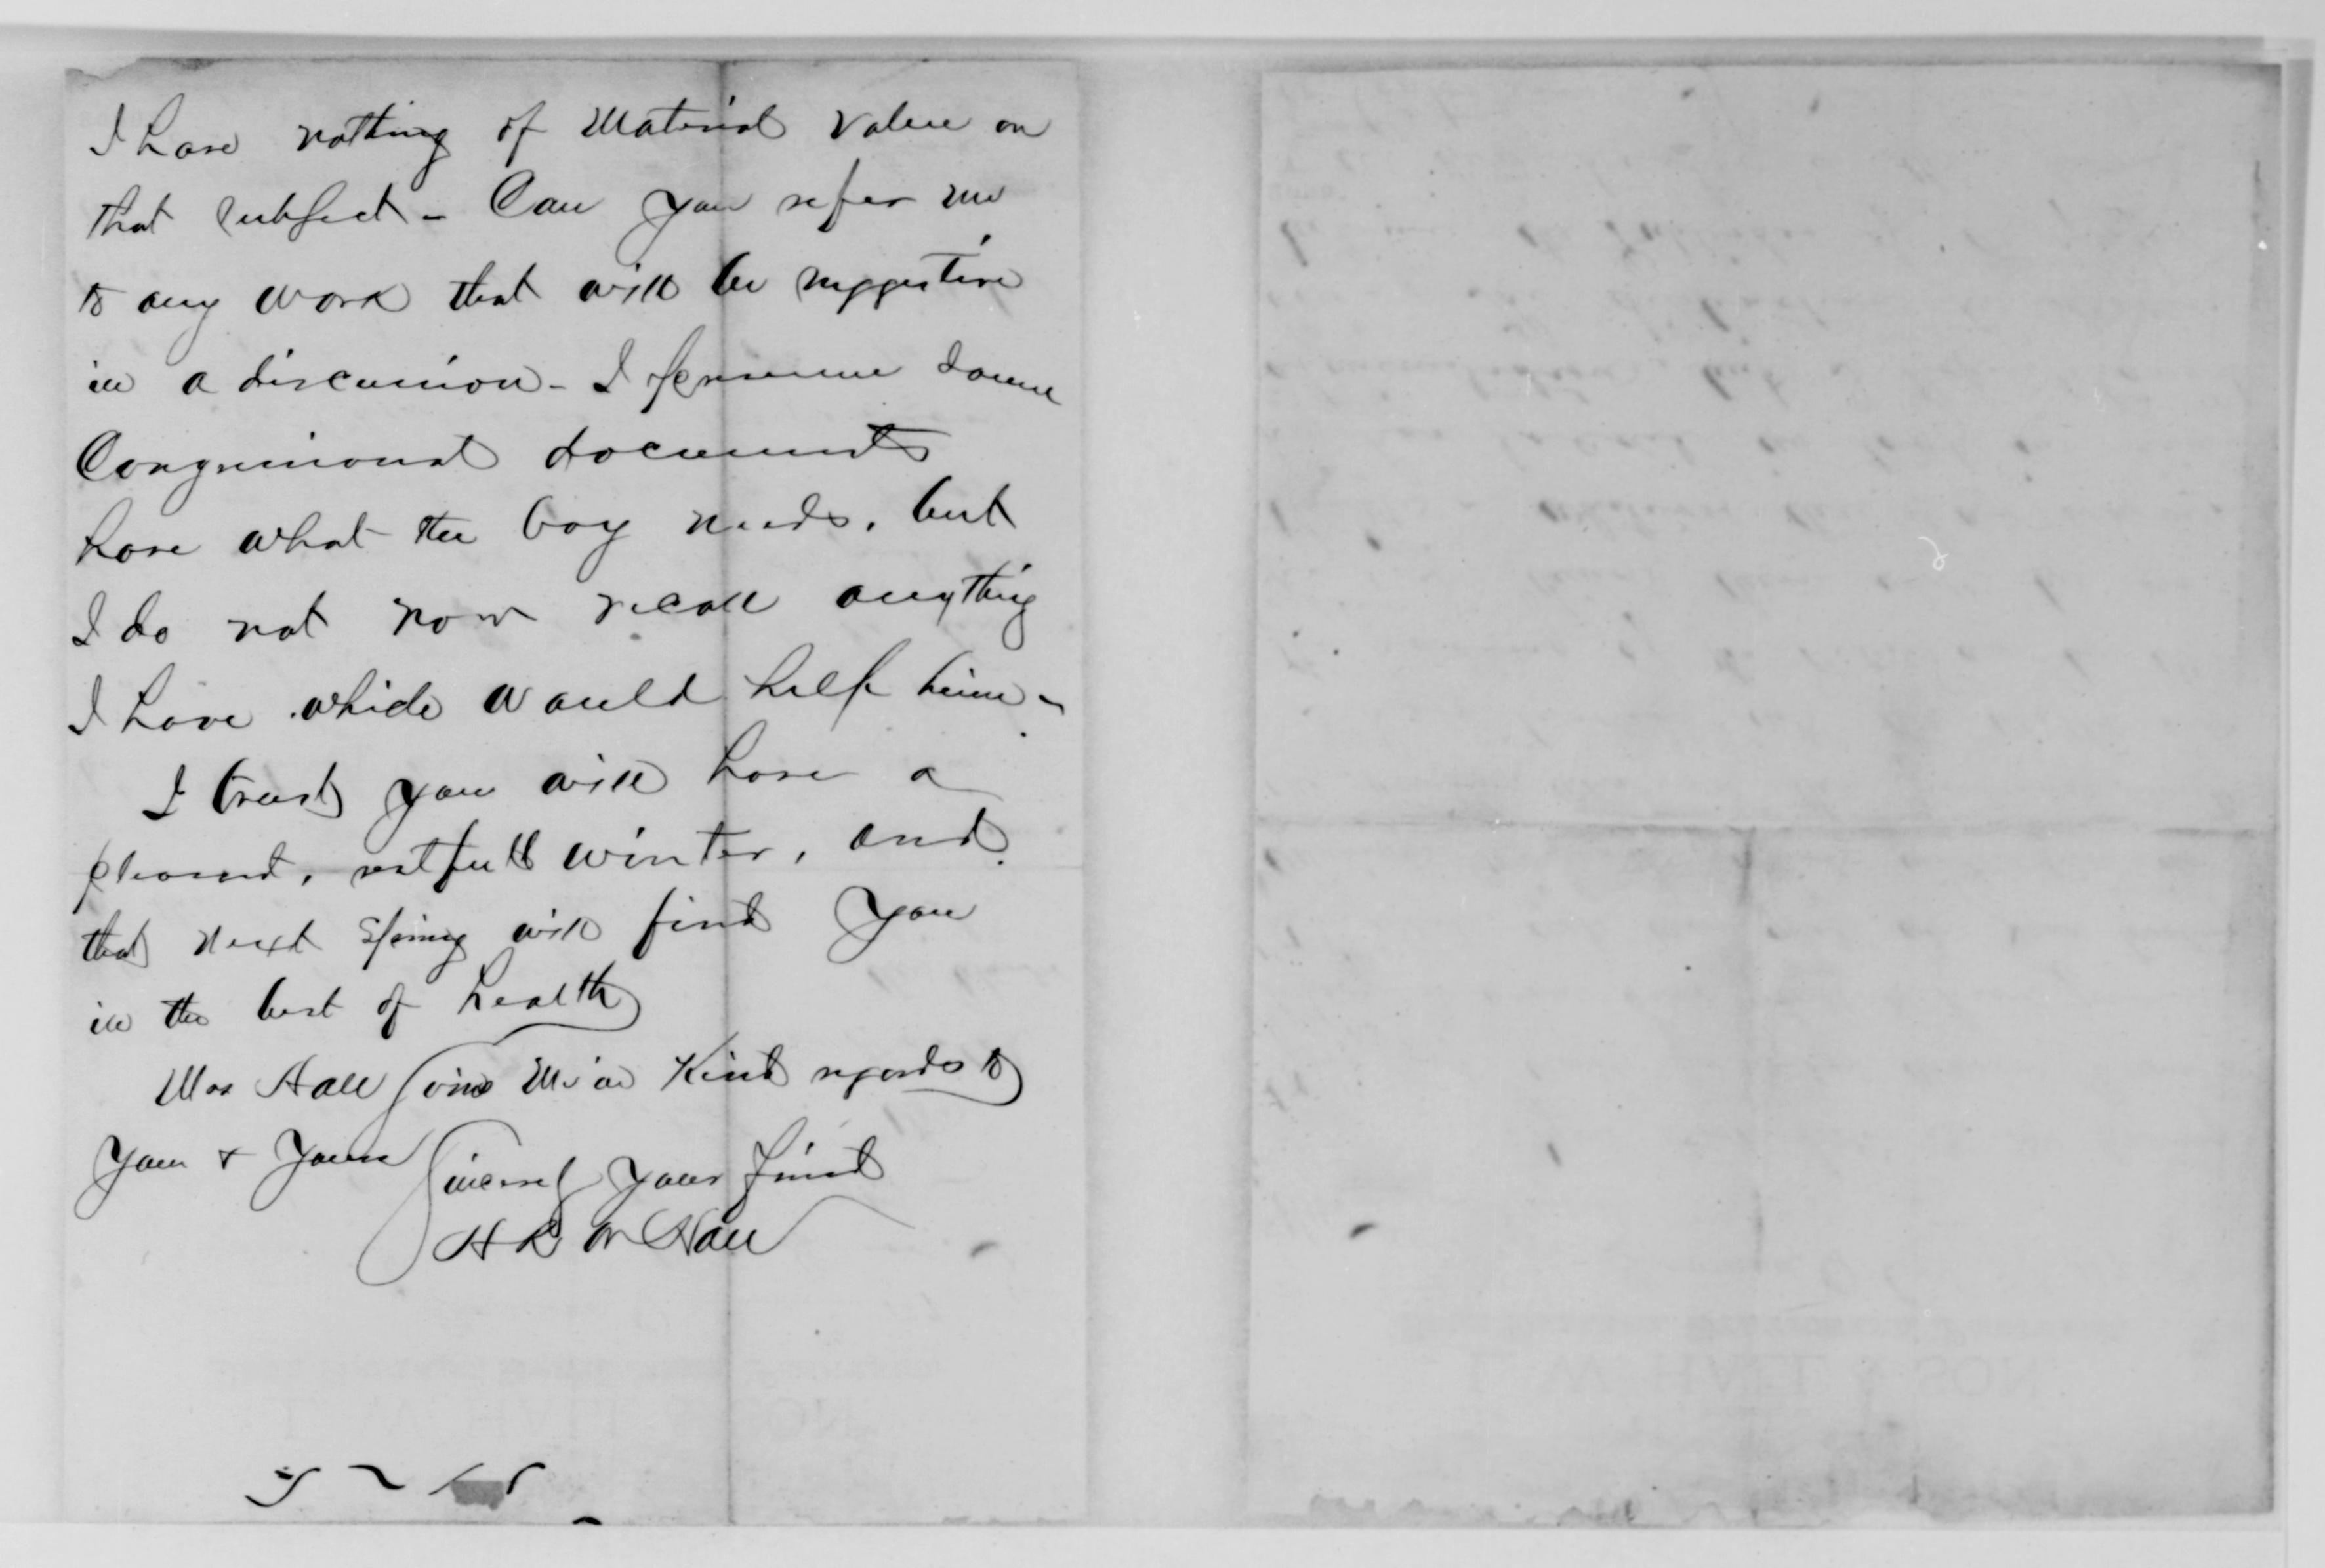 I have nothing of Material value on
that subject - Can you refer me
to any work that will be suggestive
in a discussion - I presume some
Congressional documents
have what the boy needs, but
I do not now recall anything
I have which would help him -
I trust you will have a
pleasant, restfull winter, and
that next spring will find you
in the best of health
Mrs Hall joins me in Kind regards to
you & yours Sincerely your friend
Hall